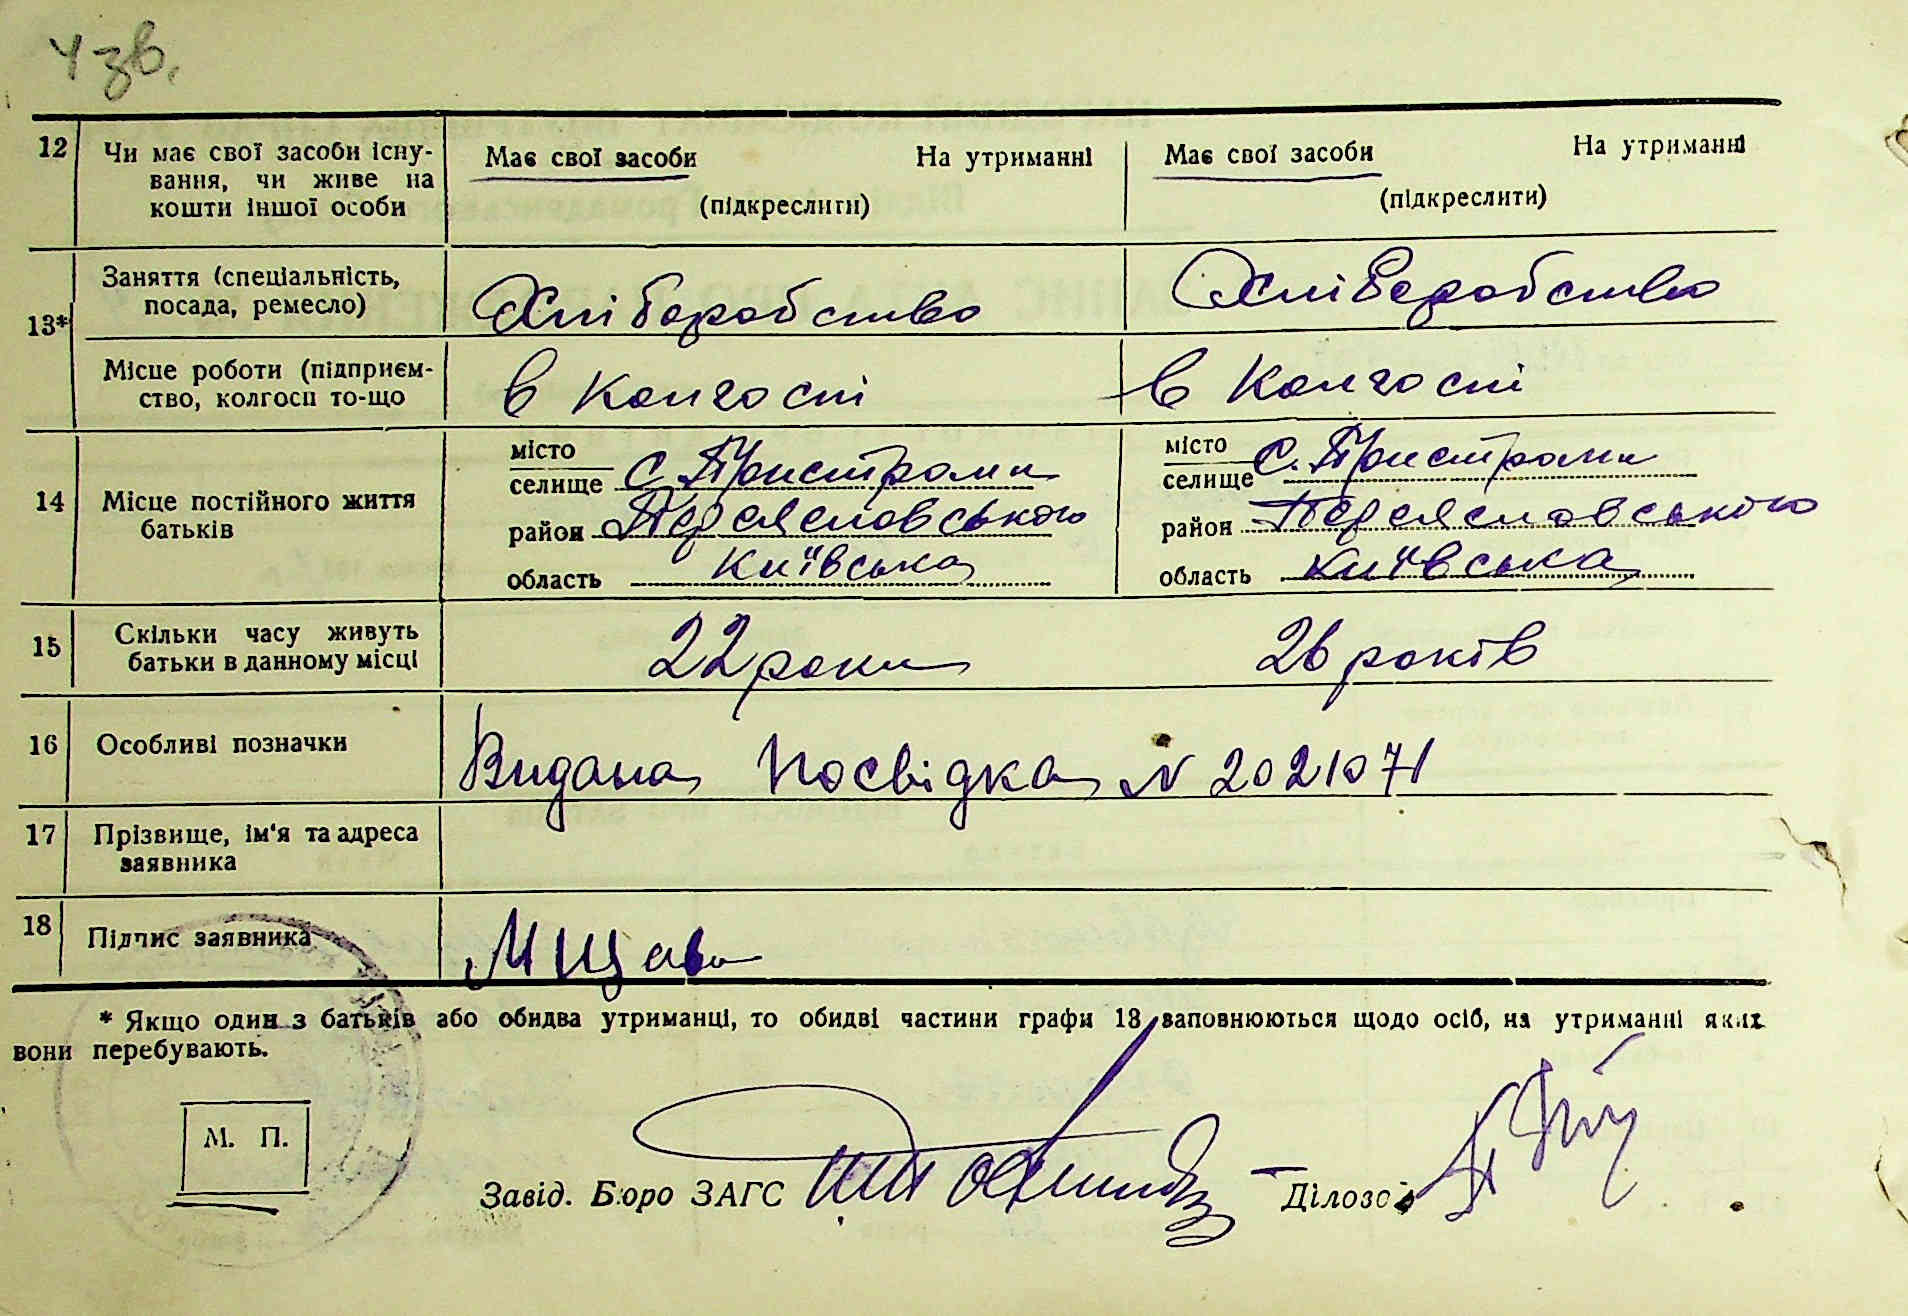 12 Чи має свої засоби існу- Має свої засоби На утриманні Має свої засоби На утриманні
вання, чи живе на
кошти іншої особи (підкреслити) (підкреслити)
Заняття (спеціальність,
посада, ремесло) Хліборобство Хліборобство
13*
Місце роботи (підприєм- в Колгоспі в Колгоспі
ство, колгосп то-що
місто місто
селище с. Пристроми селище с. Пристроми
14 Місце постійного життя
батьків район Переяславського район Переяславського
область київська область київська
15 Скільки часу живуть
батьки в данному місці 22 роки 26 років
16 Особливі позначки Видана посвідка N 2021071
17 Прізвище, ім'я та адреса
заявника
18 Підпис заявника
* Якщо один з батьків або обидва утриманці, то обидві частини графи 18 заповнюються щодо осіб, на утриманні яких
вони перебувають.
М. П.
Завід. Бюро ЗАГС Діловод